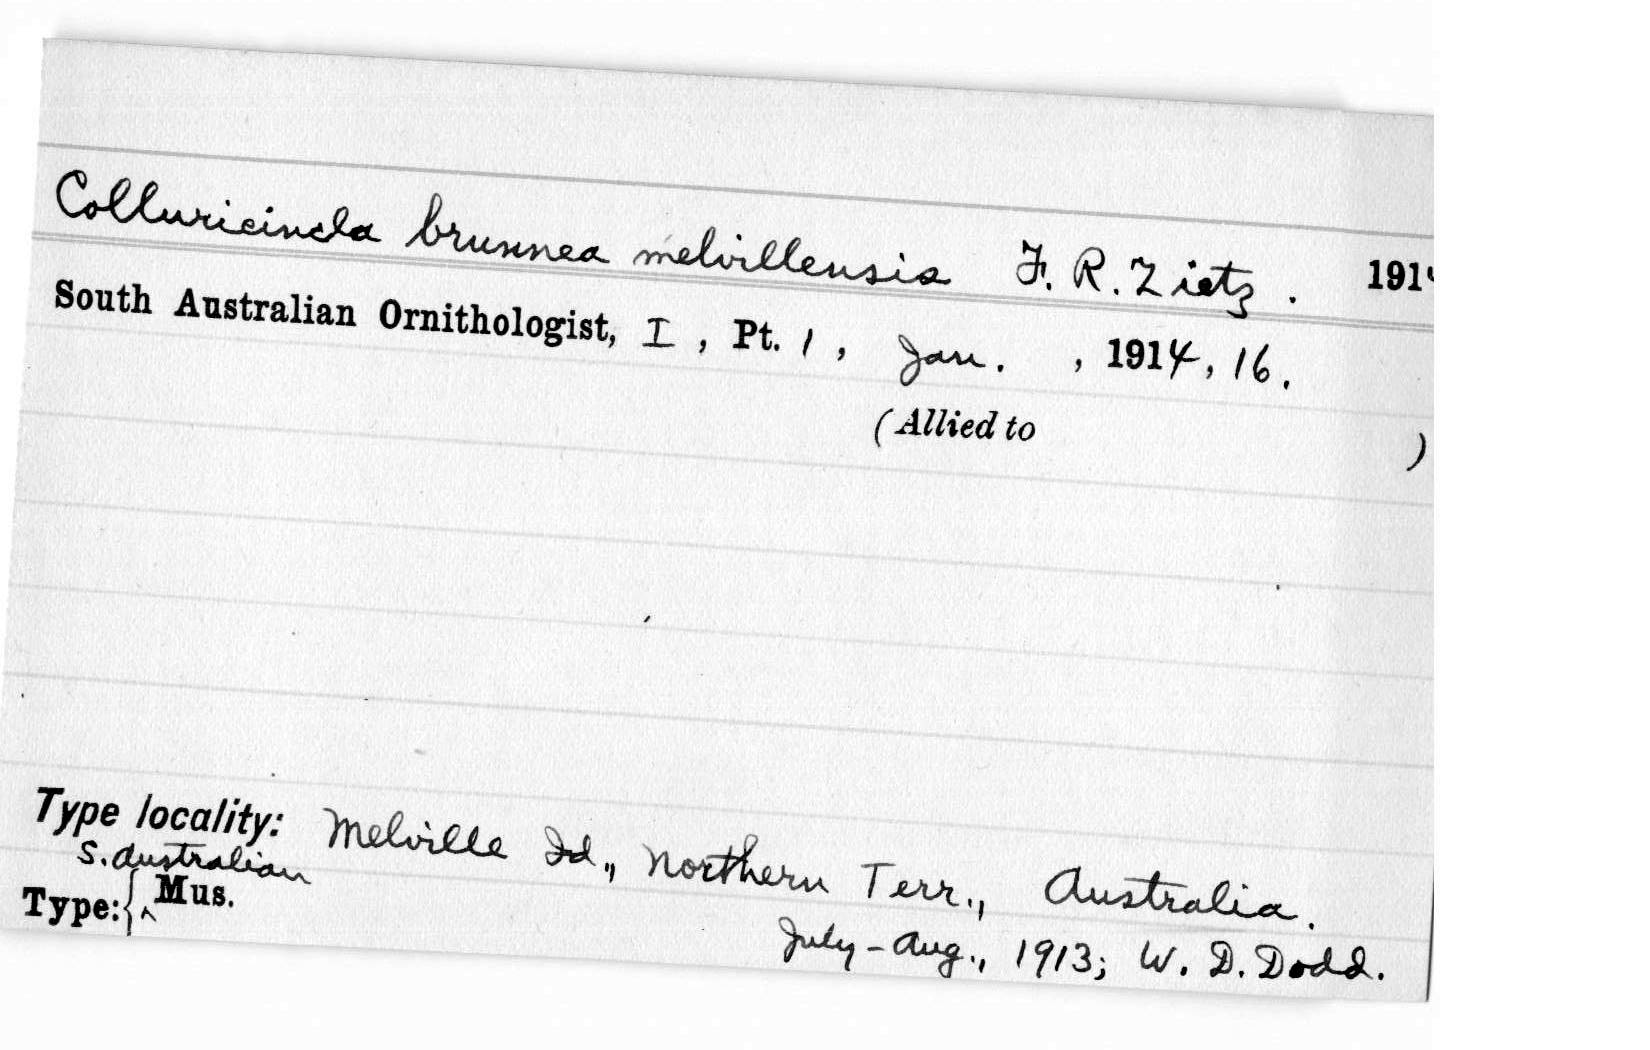 Colluricincla brunnea melvillensis F. R. Zietz. 1914
South Australian Ornithologist, I, Pt. 1, Jan., 1914, 16.
(Allied to )
Type locality: Melville Id., Northern Terr., Australia.
S. Australian
Type: { ^ Mus.
July-Aug., 1913; W. D. Dodd.